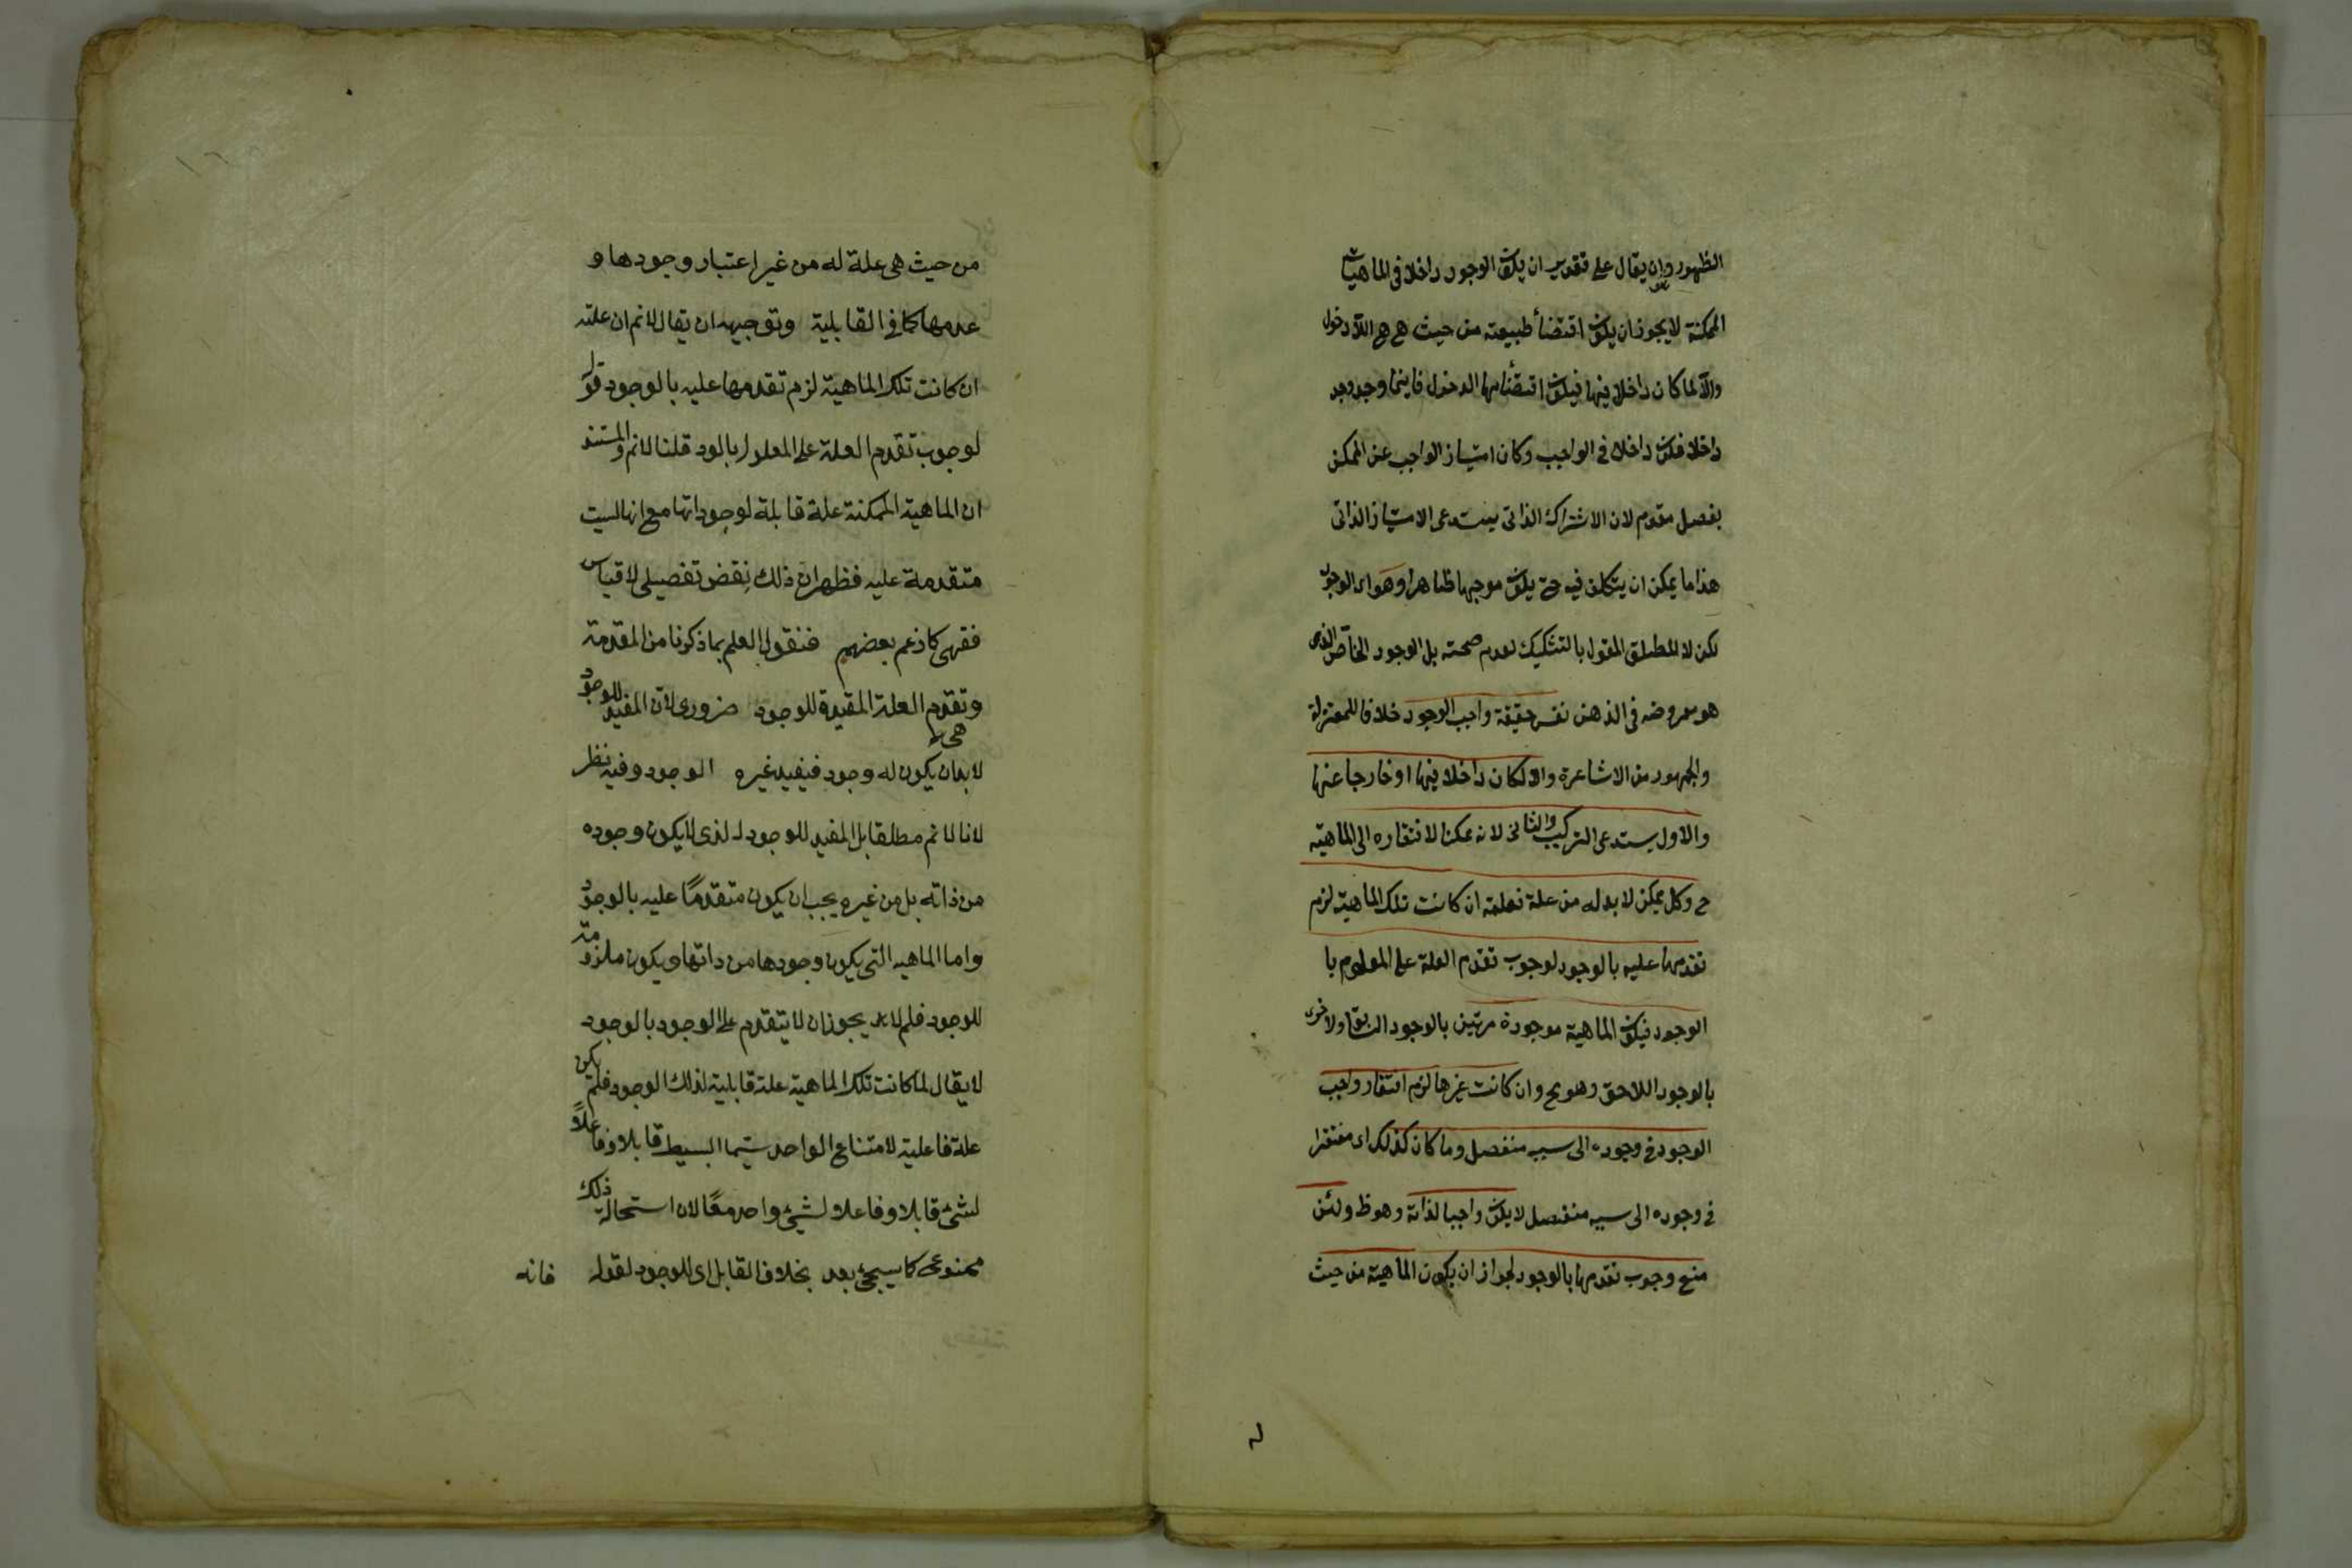 الظهور وان يقال على تقدير ان يكون الوجود داخلا فى الماهيات
الممكنة لا يجوز ان يكون اقتضأ طبيعته من حيث هى هى اللا دخول
والا لما كان داخلا فيها فيكون اقتضأها الدخول فاينما وجد وجد
داخلا فكان داخلا فى الواجب وكان امتياز الواجب عن الممكن
بفصل مقوم لان الاشتراك الذاتى يستدعى الامتياز الذاتى
هذا ما يمكن ان يتكلف فيه حتى يكون موجها ظاهرا وهو اى الوجود
لكن لا المطلق المقول بالتشكيك لعدم صحته بل الوجود الخاص الذى
هو معروضه فى الذهن نفس حقيقة واجب الوجود خلافا للمعتزلة
والجمهور من الاشاعرة والا لكان داخلا فيها او خارجا عنها
والاول يستدعى التركيب والثانى لانه ممكنا لافتقاره الى الماهية
ح وكل ممكن لا بد له من علة فعلته ان كانت تلك الماهية لزم
تقدمها عليه بالوجود لوجوب تقدم العلة على المعلوم با
الوجود فيكون الماهية موجودة مرتين بالوجود السابق ولاخرى
بالوجود اللاحق وهو مح وان كانت غيرها لزم افتقار واجب
الوجود فى وجوده الى سبب منفصل وما كان كذلك اى مفتقرا
فى وجوده الى سبب منفصل لا يكون واجبا لذاته وهو ظ ولئن
منع وجوب تقدمها بالوجود لجواز ان يكون الماهية من حيث
من حيث هى علة له من غير اعتبار وجودها و
عدمها كما فى القابلية وتوجيهه ان يقال لانم ان علته
ان كانت تلك الماهية لزم تقدمها عليه بالوجود قوله
لوجوب تقدم العلة على المعلول بالود قلنا لانم والمستند
ان الماهية الممكنة علة قابلة لوجوداتها مع انها ليست
متقدمة عليه فظهر ان ذلك نقض تفصيلى لا قياس
فقهى كما زعم بعضهم فنقول العلم بما ذكرنا من المقدمة
وتقدم العلة المفيدة للوجود ضرورى لان المفيد للوجود
لا بد ان يكون له وجود فيفيد غيره الوجود وفيه نظر
لانا لا نم مطلقا بل المفيد للوجود الذى لا يكون وجوده
من ذاته بل من غيره يجب ان يكون متقدمًا عليه بالوجود
واما الماهيه التى يكون وجودها من ذاتها ويكون ملزومة
للوجود فلم لا يجوز ان لا يتقدم على الوجود بالوجود
لا يقال لما كانت تلك الماهية علة قابلية لذلك الوجود فلم يكن
علة فاعلية لامتناع الواحد سيما البسيط قابلا وفاعلاً
لشئ قابلا وفاعلا لشئ واحد معًا لان استحالة ذلك
ممنوعة كما سيجئ بعد بخلاف القابل اى للوجود لقوله فانه